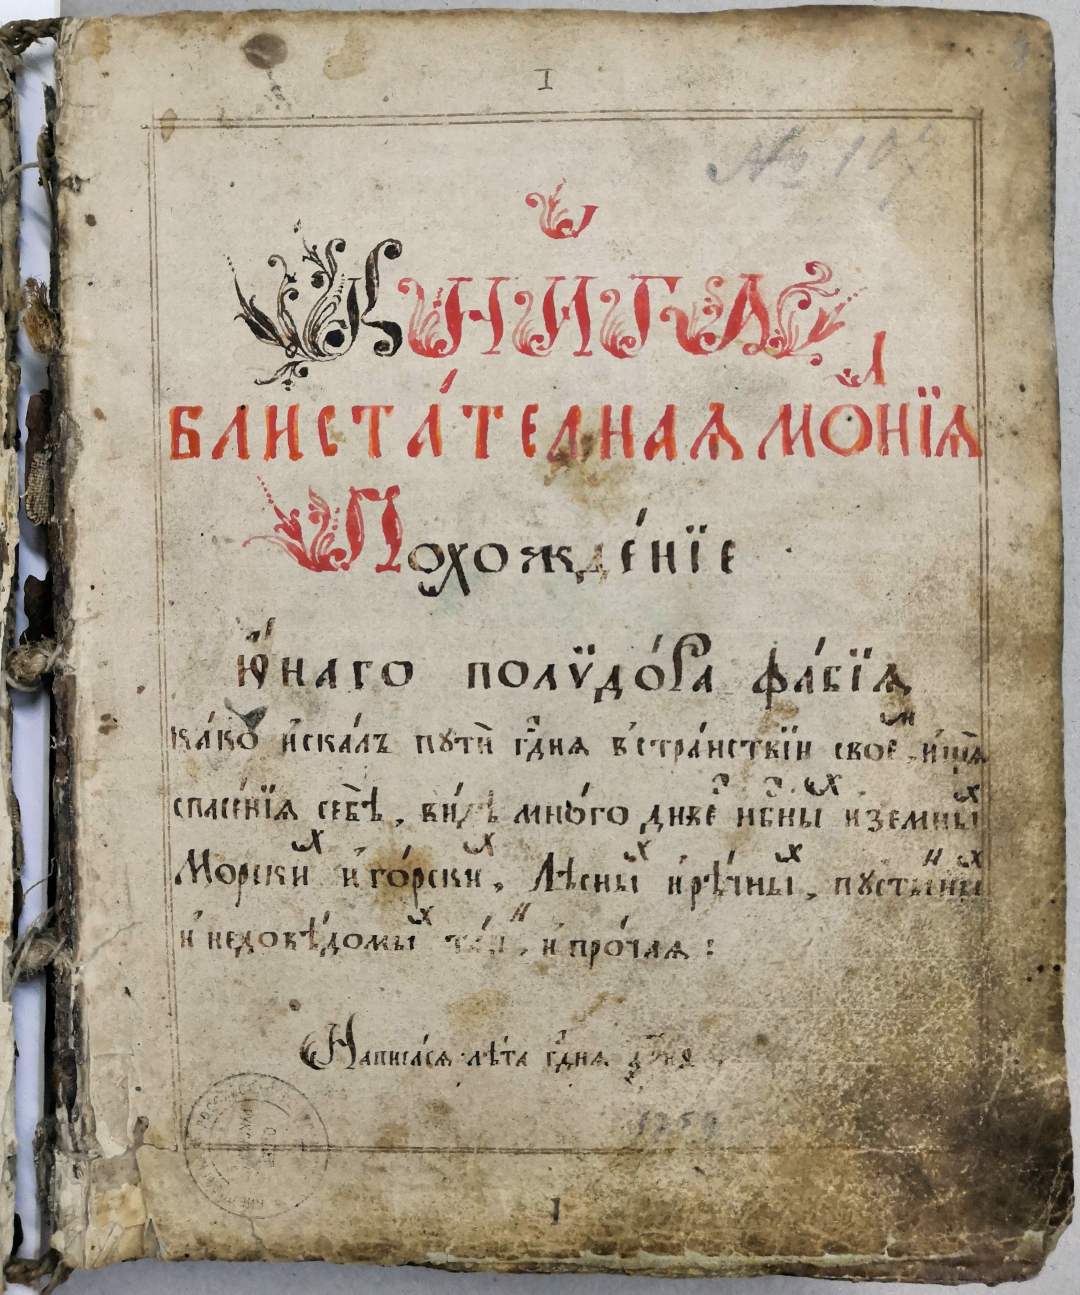 I
№ 10
КНИГА
БЛИСТА́ТЕЛНАЯ МО́ЛНЇЯ
Похожде́нїе
Ю́наго полѷдо́ра фа́вїѧ
ка́ко иска́лъ пути гдⷭ҇нѧ в стра́нствїи свое́ᵐ, и҆щѧ̀
спасе́нїѧ себѣ̀, ви́дѣ мно́го диве и нбⷭ҇ныⷯ и земныⷯ
Морскиⷯ и го́рскиⷯ, Лѣсныⷯ и рѣ́чныⷯ, пусты́ⷩныⷯ
и недовѣ́домыⷯ таиⷩ, и про́чаѧ:
Написа́сѧ лѣ́та гдⷭ҇нѧ
I